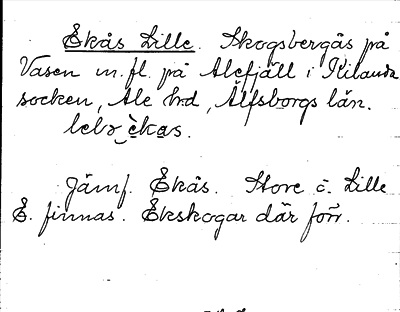 Ekås Lille. Skogsbergås på
Vasen m.fl. på Alefjäll i Kilanda
socken, Ale hrd, Älfsborgs län.
Jämf. Ekås. Store o. Lille
E. finnas. Ekskogar där förr.